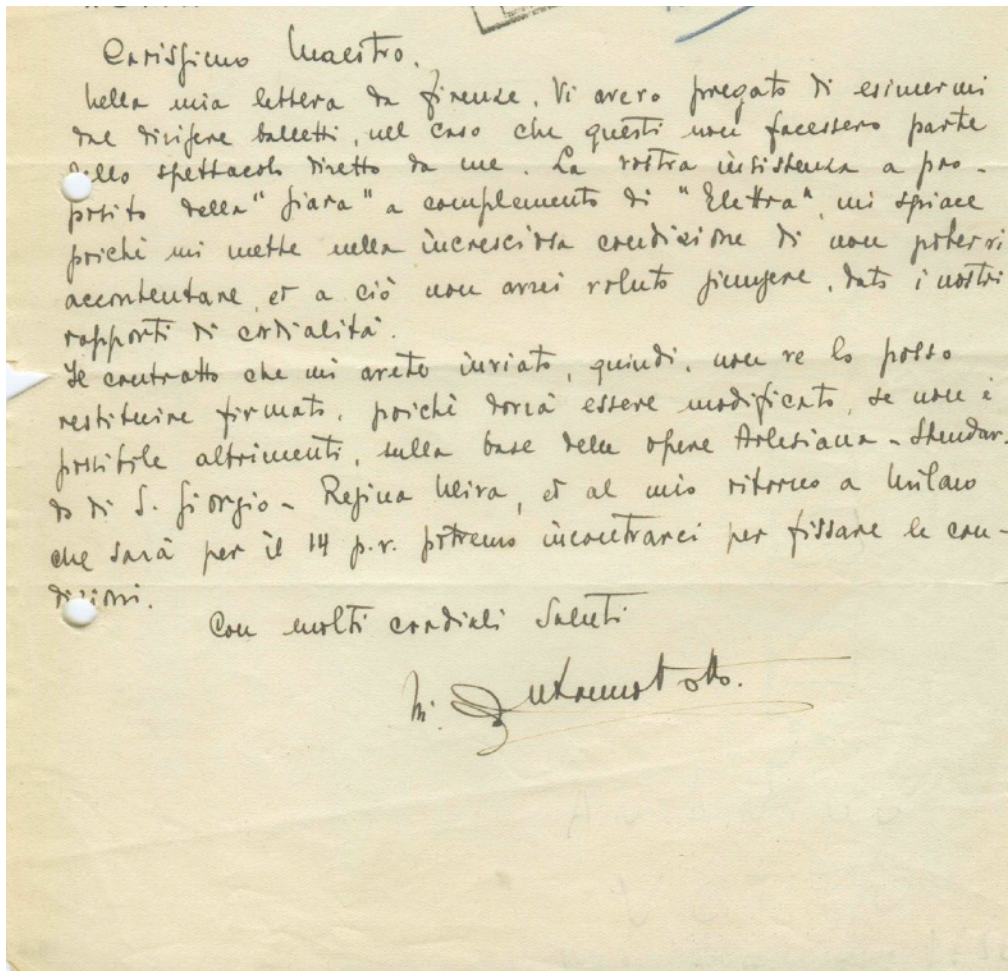 Carissimo Maestro.
Nella mia lettera da Firenze. Vi avevo pregato di esimermi
dal dirigere balletti, nel caso che questi non facessero parte
dello spettacolo diretto da me. La vostra insistenza a pro-
posito della "Giara" a complemento di "Elettra", mi spiace
poichè mi mette nella incresciosa condizione di non potervi
accontentare, ed a ciò non avrei voluto giungere, dato i nostri
rapporti di cordialità.
Il contratto che mi avete inviato, quindi, non ve lo posso
restituire firmato, poichè dovrà essere modificato, se non è
possibile altrimenti, sulla base delle opere Arlesiana - Stendar-
do di S. Giorgio - Regina Uliva, ed al mio ritorno a Milano
che sarà per il 14 p.v. potremo incontrarci per fissare le con-
dizioni.
Con molti cordiali saluti